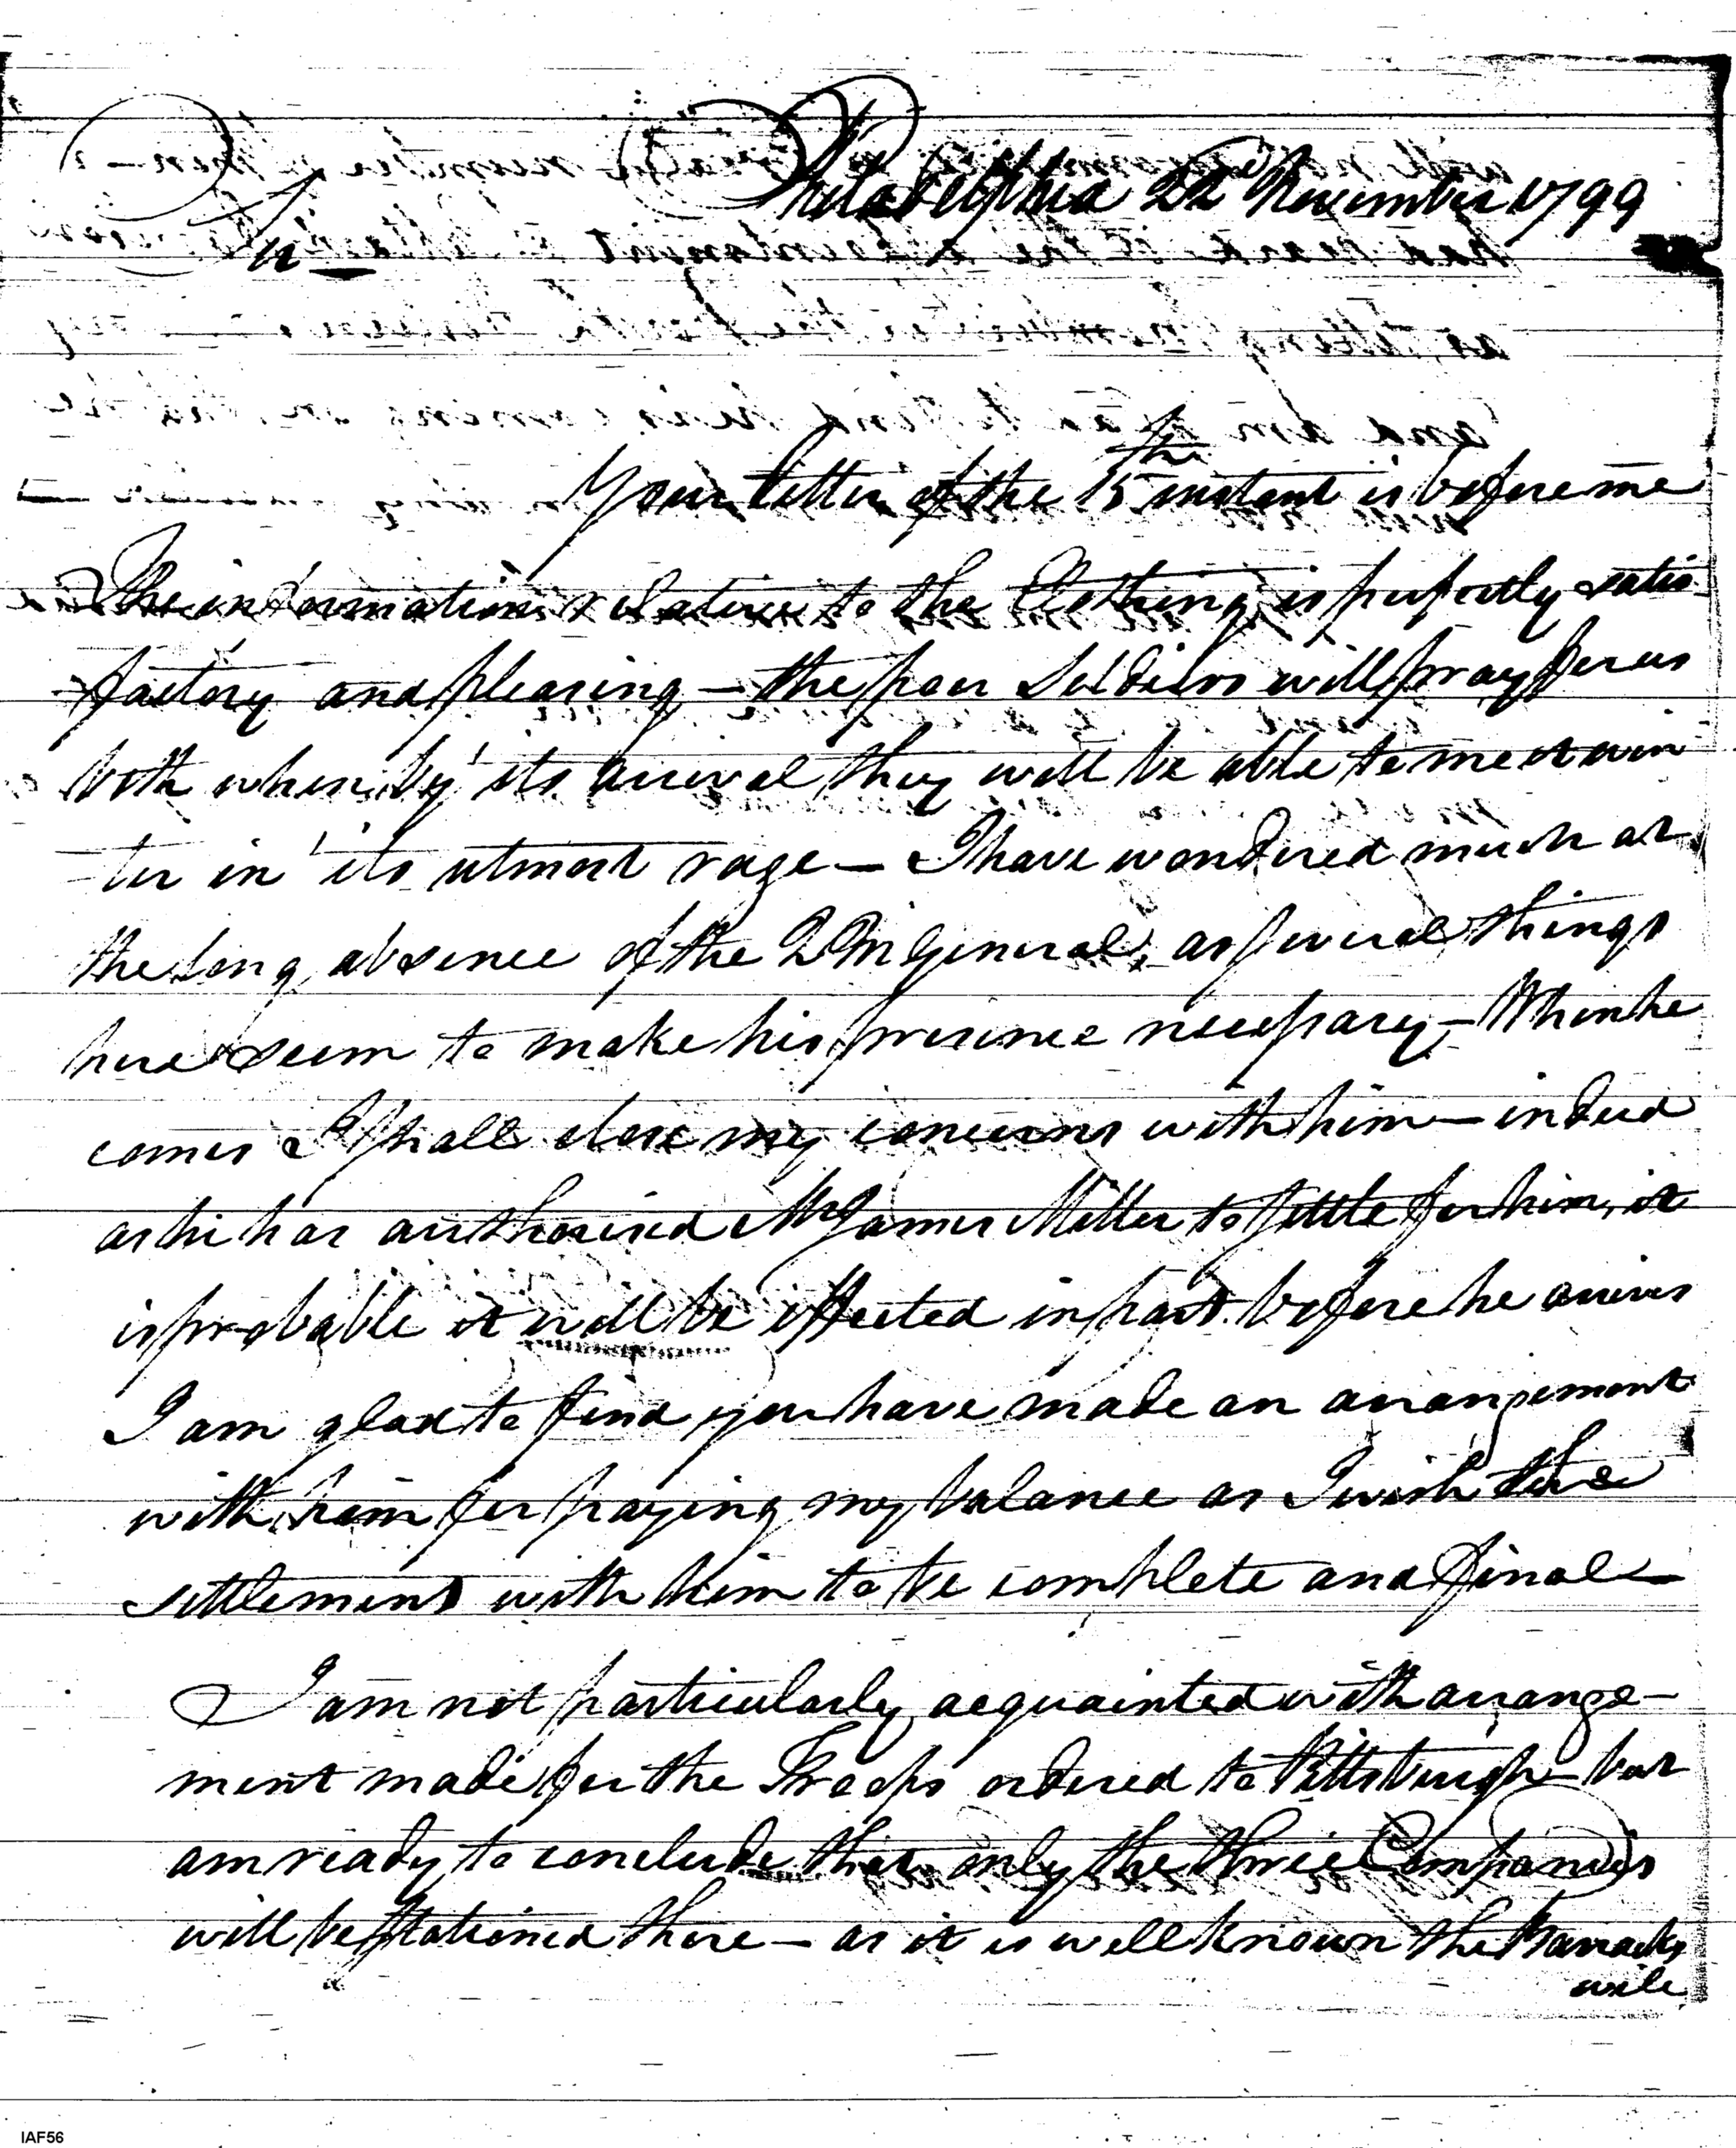 Philadelphia 22d November 1799
Sir
Your letter of the 15th instant is before me
The information relative to the Clothing is perfectly satis-
factory and pleasing — the poor Soldiers will pray for us
both when by its arrival they will be able to meet win
-ter in its utmost rage — I have wondered much at
the long absence of the QM General, as several things
here seem to make his presence necessary — When he
comes I shall close my concerns with him — indeed
as he has authorised Mr James Miller to settle for him, it
is probable it will be effected in part before he arrives
I am glad to find you have made an arrangement
with him for paying my balance as I wish the
settlement with him to be complete and final —
I am not particularly acquainted with arrange-
ment made for the Troops ordered to Pittsburgh — but
am ready to conclude that only the three Companies
will be stationed there — as it is well known the Barracks
will
IAF56